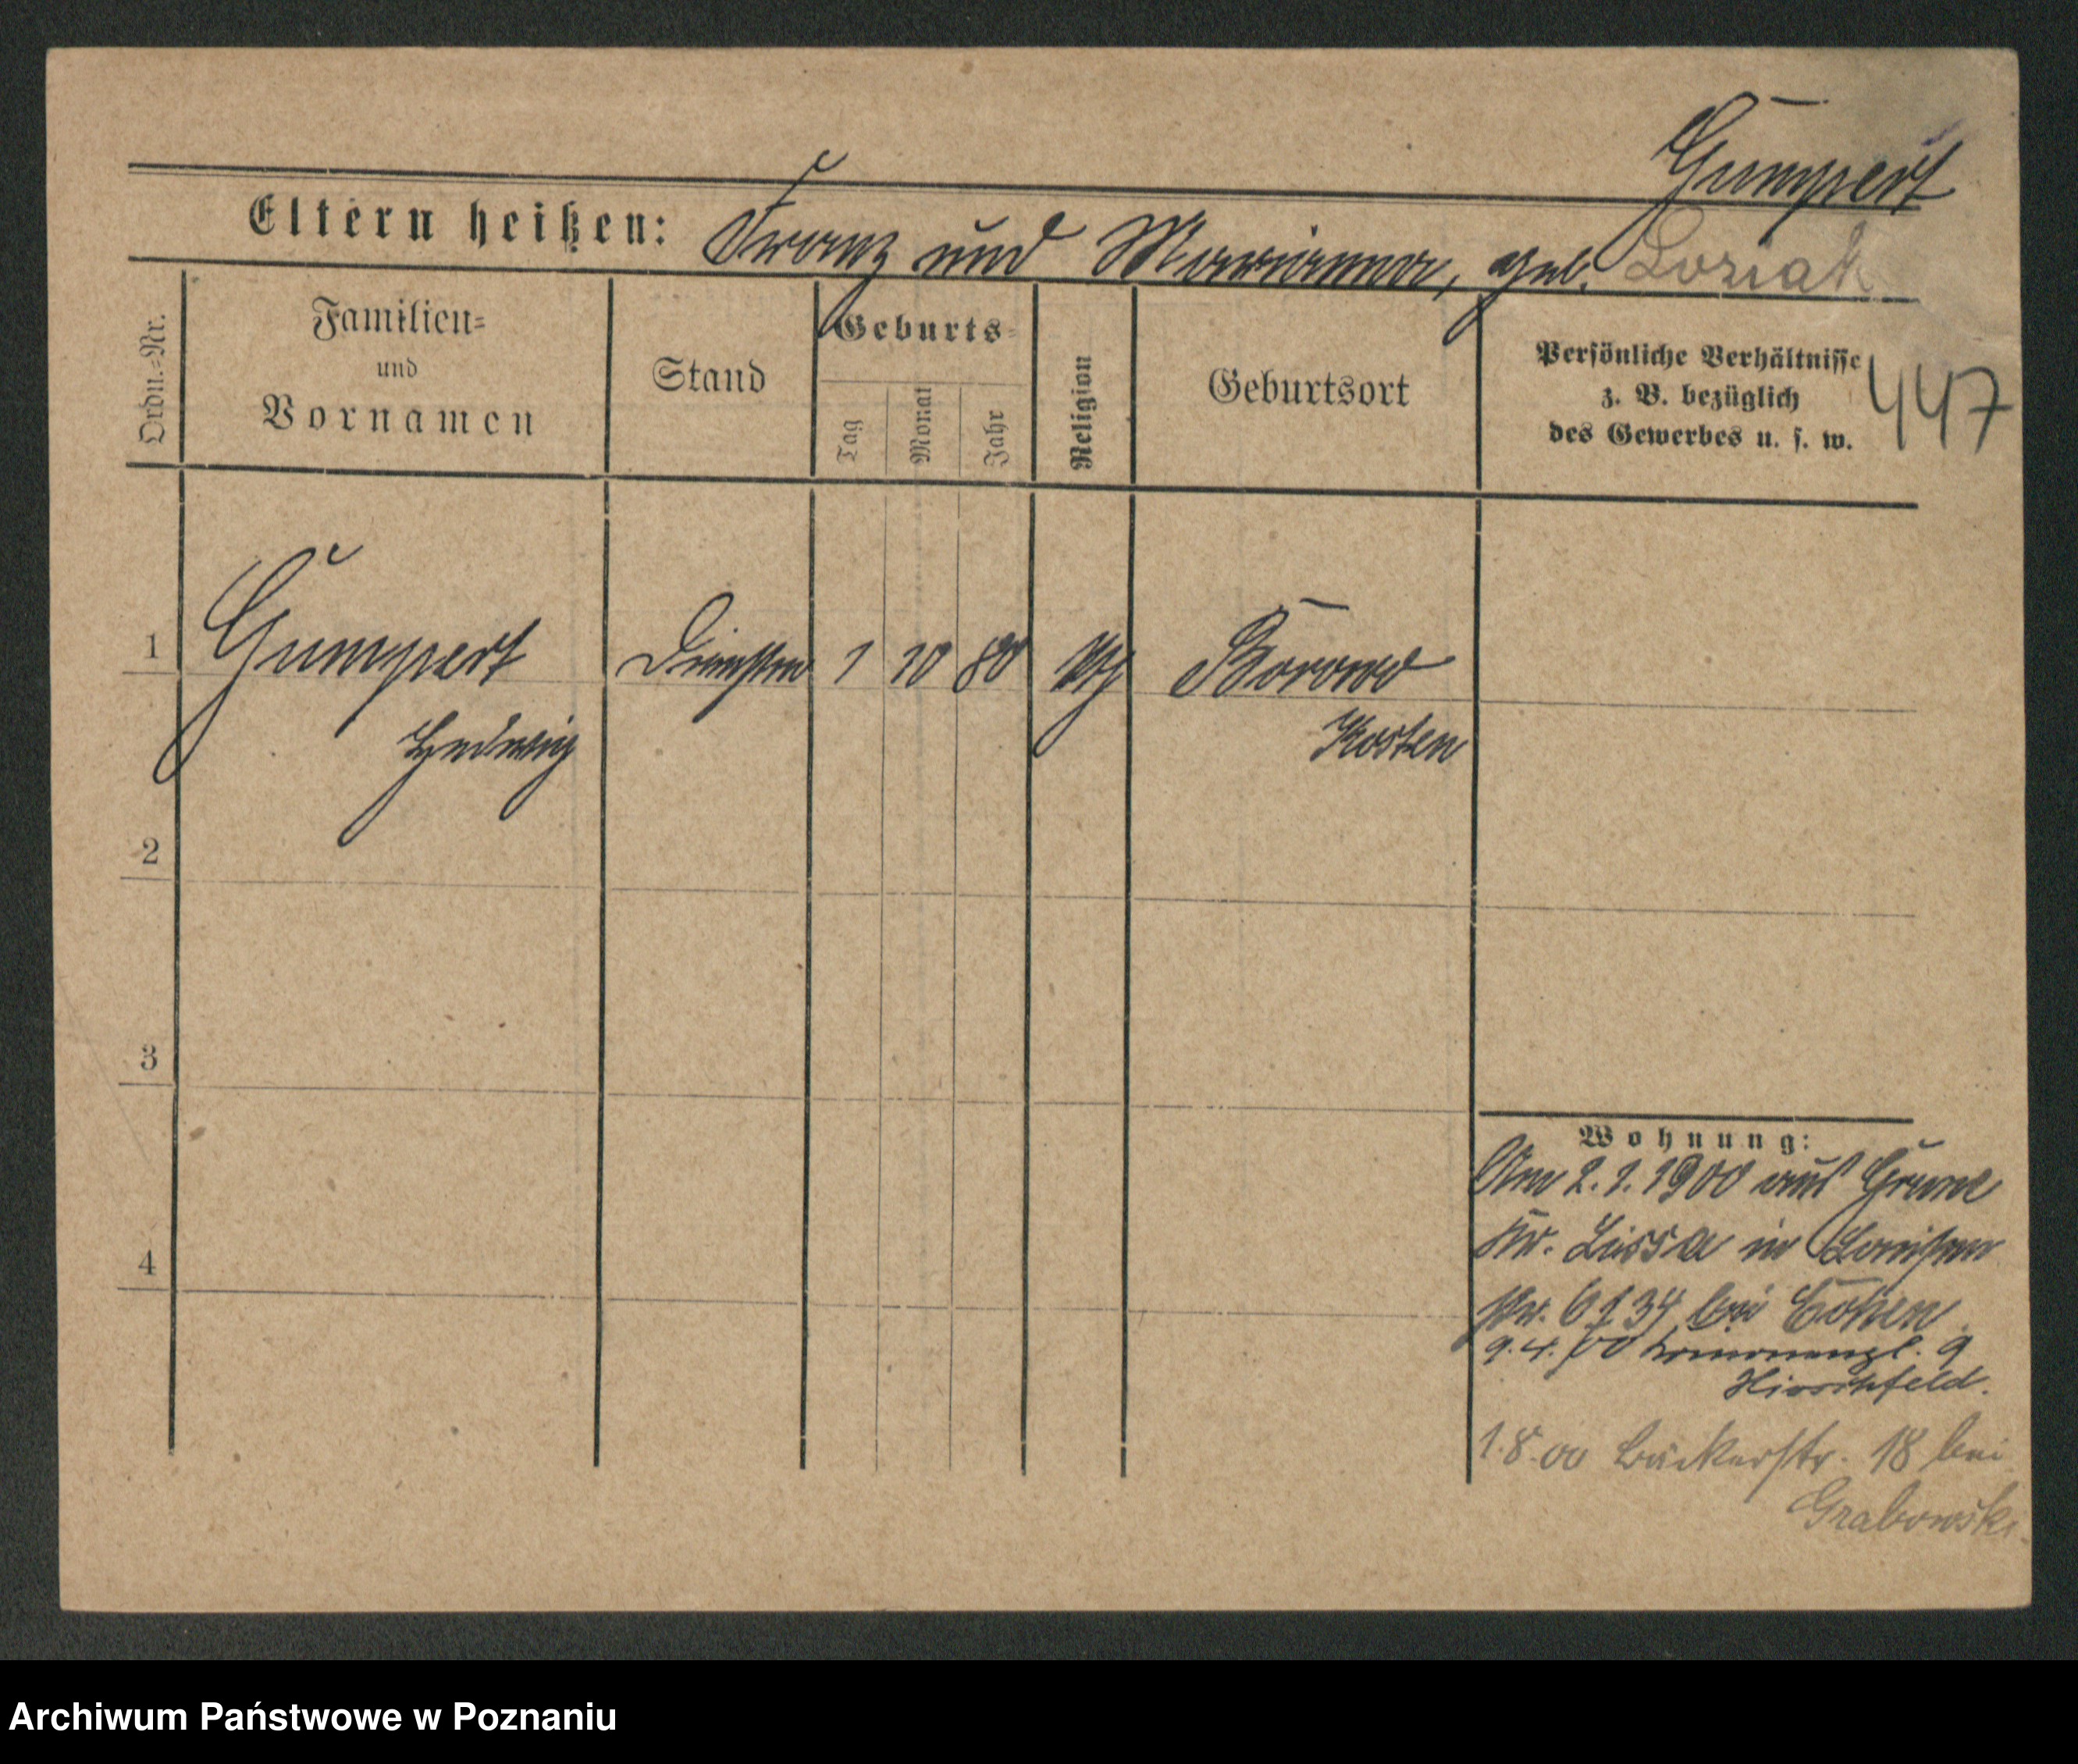 Gumpert
Eltern heißen: Franz und Marianna, geb. Loziak
Ordn.=Nr.
Familien=
und
Vornamen
Stand
Geburts=
Tag
Monat
Jahr
Religion
Geburtsort
Persönliche Verhältnisse
z. B. bezüglich
des Gewerbes u. s. w.
447
1 Gumpert 1 10 80 kth Borowo
Hedwig Kosten
2
3
4
Wohnung:
Am 2. 1. 1900 aus Grune
Kr. Lissa in Louisen
str. bei Cohen
9. 4. 00 9
Hirschfeld.
1. 8. 00 Bäckerstr. 18 bei
Grabowski.
Archiwum Państwowe w Poznaniu